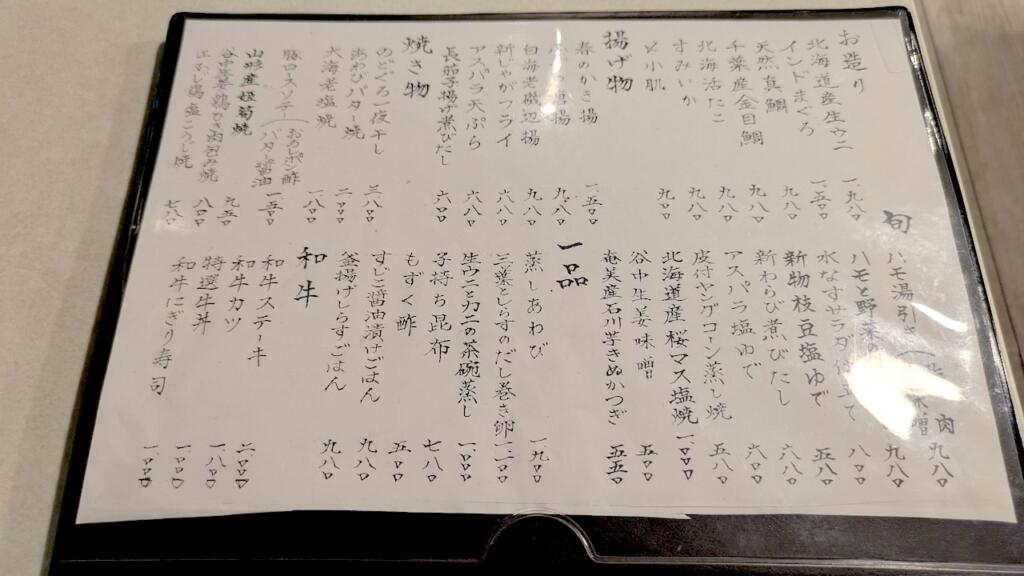 お造り
北海道産生ウニ 一、九八〇
インドまぐろ 一、五〇〇
天然真鯛 九八〇
千葉産金目鯛 九八〇
北海活たこ 九八〇
すみいか 九八〇
〆小肌 九〇〇
揚げ物
春のかき揚 一、五〇〇
揚 九八〇
白海老磯辺揚 九八〇
新じゃがフライ 六八〇
アスパラ天ぷら 六八〇
長茄子揚げ煮びたし 六〇〇
焼き物
のどぐろ一夜干し 三、八〇〇
あわびバター焼 二、〇〇〇
大海老塩焼 一、八〇〇
豚ロースソテー(おろしポン酢 バター醤油 一、五〇〇
山形産 焼 九五〇
谷中 鶏ひき肉 焼 八〇〇
焼 七八〇
旬
ハモ湯引き( 肉 九八〇
味噌 九八〇
ハモと野菜の 八〇〇
水なすサラダ仕立て 五八〇
新物枝豆塩ゆで 六八〇
新わらび煮びたし 六〇〇
アスパラ塩ゆで 五八〇
皮付ヤングコーン蒸し焼
北海道産桜マス塩焼 一、〇〇〇
谷中生姜味噌 五〇〇
奄美産石川芋きぬかつぎ 五五〇
一品
蒸しあわび 一、九〇〇
三葉としらすのだし巻き卵 一、一〇〇
生ウニとカニの茶碗蒸し 一、〇〇〇
子持ち昆布 七八〇
もずく酢 五〇〇
すじこ醤油漬けごはん 九八〇
釜揚げしらすごはん 九八〇
和牛
和牛ステーキ 二、〇〇〇
和牛カツ 一、八〇〇
特選牛丼 一、〇〇〇
和牛にぎり寿司 一、〇〇〇